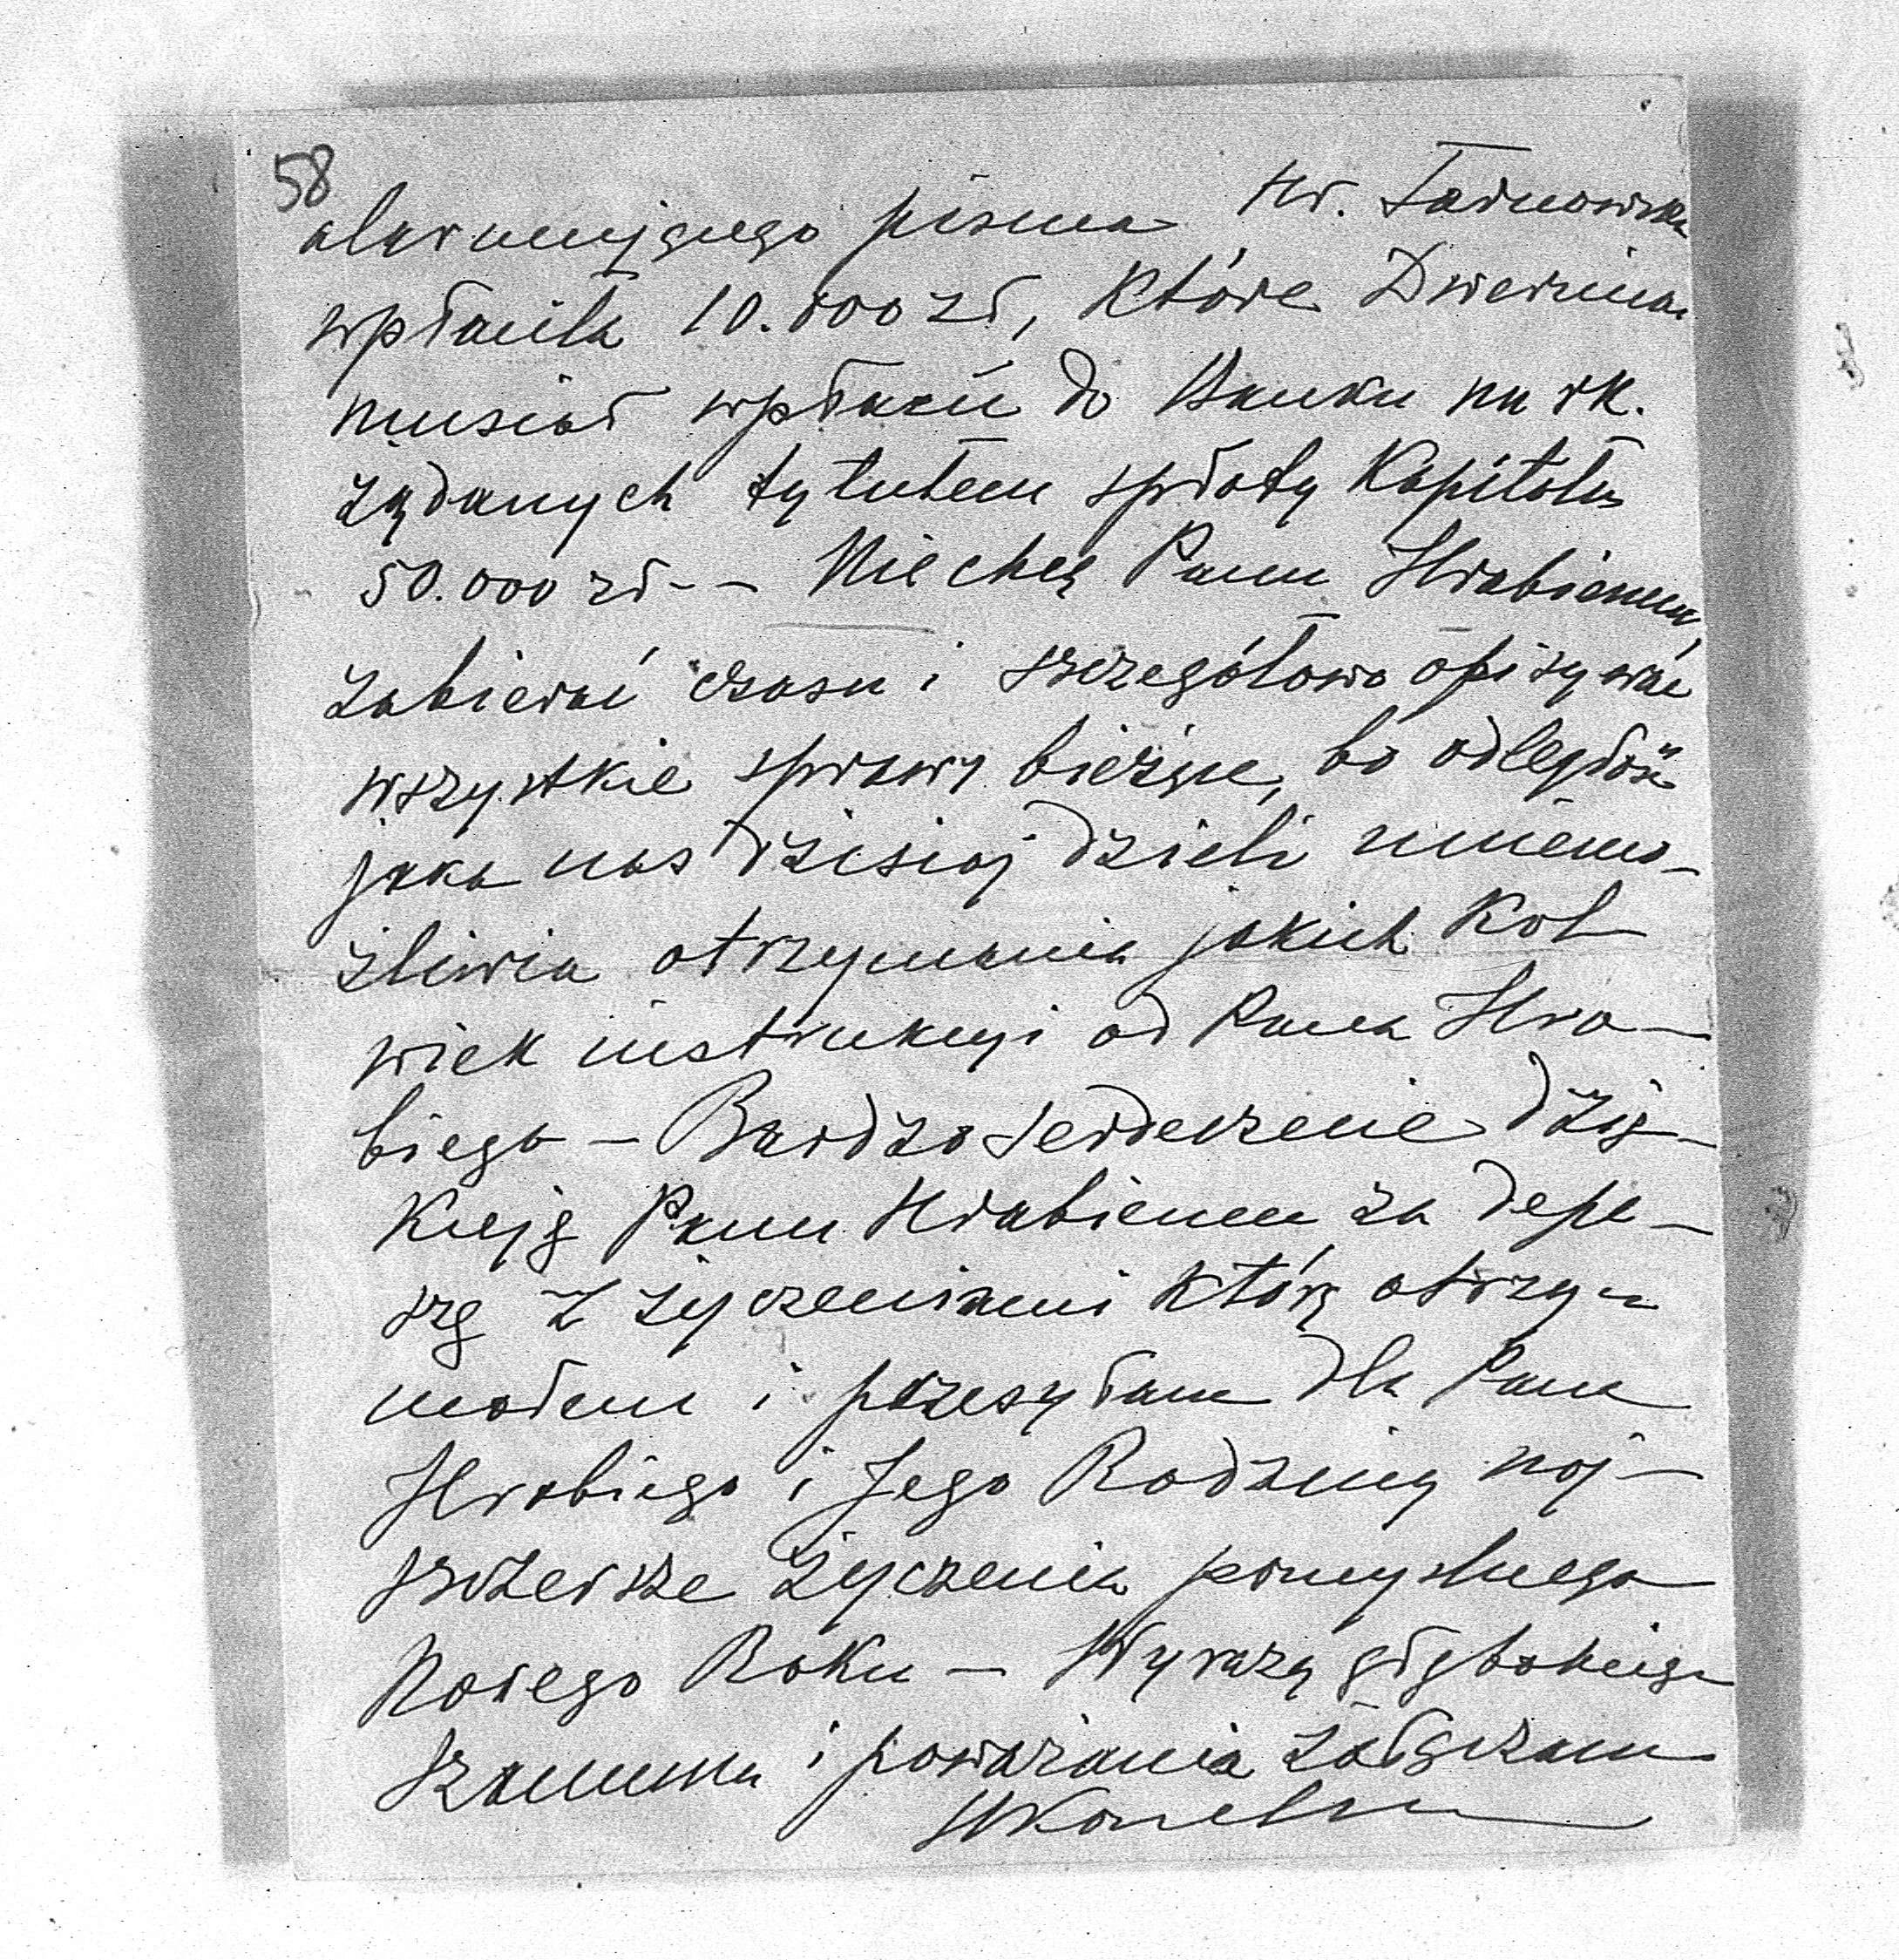 58
alarmującego pisma Hr. Tarnowska
wpłaciła 10.000 zł, które Dwernicki
musiał wpłacić do Banku na rk.
żądanych tytułem spłaty Kapitału
50.000 zł -- Nie chcę Panu Hrabiemu,
zabierać czasu i szczegółowo opisywać
wszystkie sprawy bieżące, bo odległość
jaka nas dzisiaj dzieli uniemo-
żliwia otrzymania jakich Kol
wiek instrukcyi od Pana Hra-
biego - Bardzo serdecznie dzię-
Kuję Panu Hrabiemu za depe-
szę z życzeniami którą otrzy-
małem i przesyłam dla Pana
Hrabiego i Jego Rodziny naj-
szczersze życzenia pomyślnego
Nowego Roku - Wyrazy głębokiego
szacunku i poważania załączam